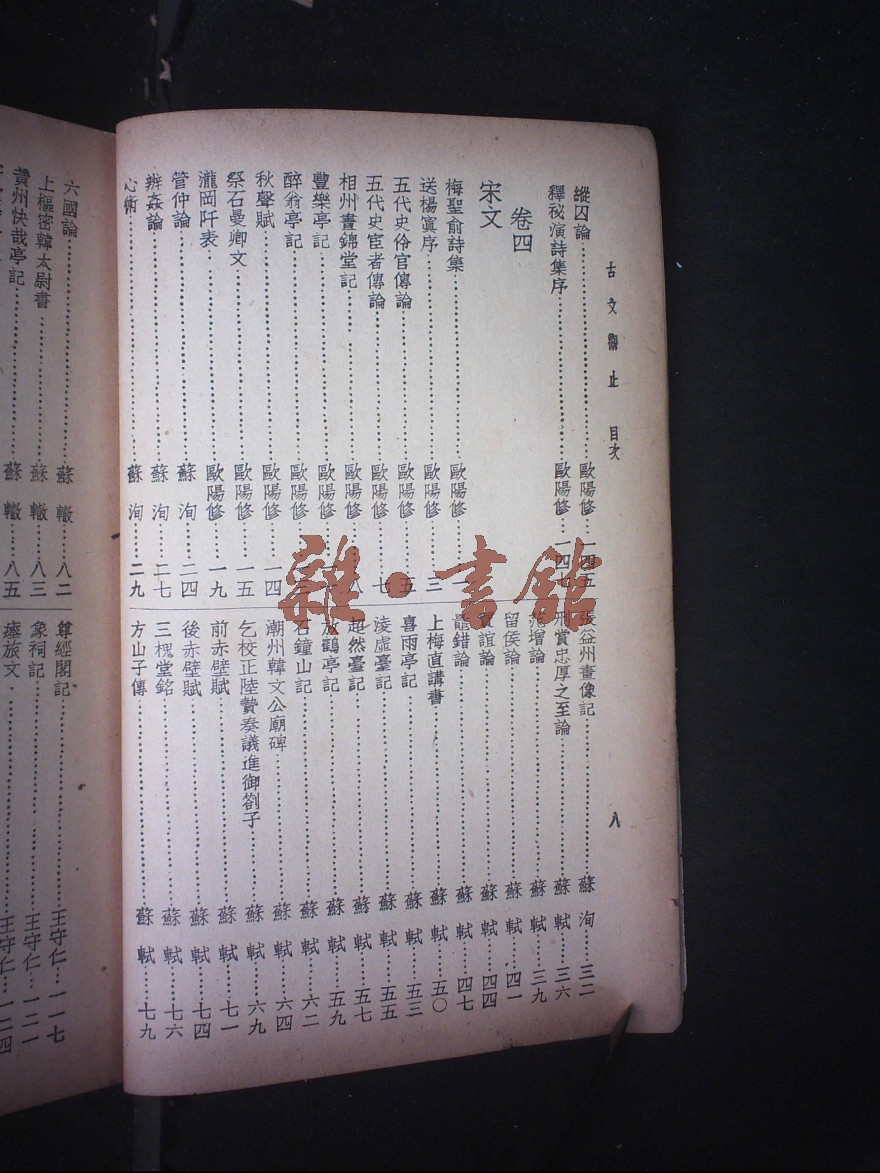 古文觀止 目次 八
縱囚論 歐陽修 一四五
釋祕演詩集序 歐陽修 一四七
卷四
宋文
梅聖俞詩集 歐陽修
送楊寘序 歐陽修 三
五代史伶官傳論 歐陽修 五
五代史宦者傳論 歐陽修 七
相州晝錦堂記 歐陽修 八
豐樂亭記 歐陽修
醉翁亭記 歐陽修
秋聲賦 歐陽修 一四
祭石曼卿文 歐陽修 一五
瀧岡阡表 歐陽修 一九
管仲論 蘇洵 二四
辨姦論 蘇洵 二七
心術 蘇洵 二九
張益州畫像記 蘇洵 三二
刑賞忠厚之至論 蘇軾 三六
范增論 蘇軾 三九
留侯論 蘇軾 四一
賈誼論 蘇軾 四四
鼂錯論 蘇軾 四七
上梅直講書 蘇軾 五〇
喜雨亭記 蘇軾 五三
淩虛臺記 蘇軾 五五
超然臺記 蘇軾 五七
放鶴亭記 蘇軾 五九
石鐘山記 蘇軾 六二
潮州韓文公廟碑 蘇軾 六四
乞校正陸贄奏議進御劄子 蘇軾 六九
前赤壁賦 蘇軾 七一
後赤壁賦 蘇軾 七四
三槐堂銘 蘇軾 七六
方山子傳 蘇軾 七九
六國論 蘇轍 八二
上樞密韓太尉書 蘇轍 八三
黃州快哉亭記 蘇轍 八五
尊經閣記 王守仁 一一七
象祠記 王守仁 一二一
瘞旅文 王守仁 一二四
雜·書館